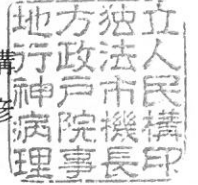 地方独立
行政法人
神戸市民
病院機構
理事長印